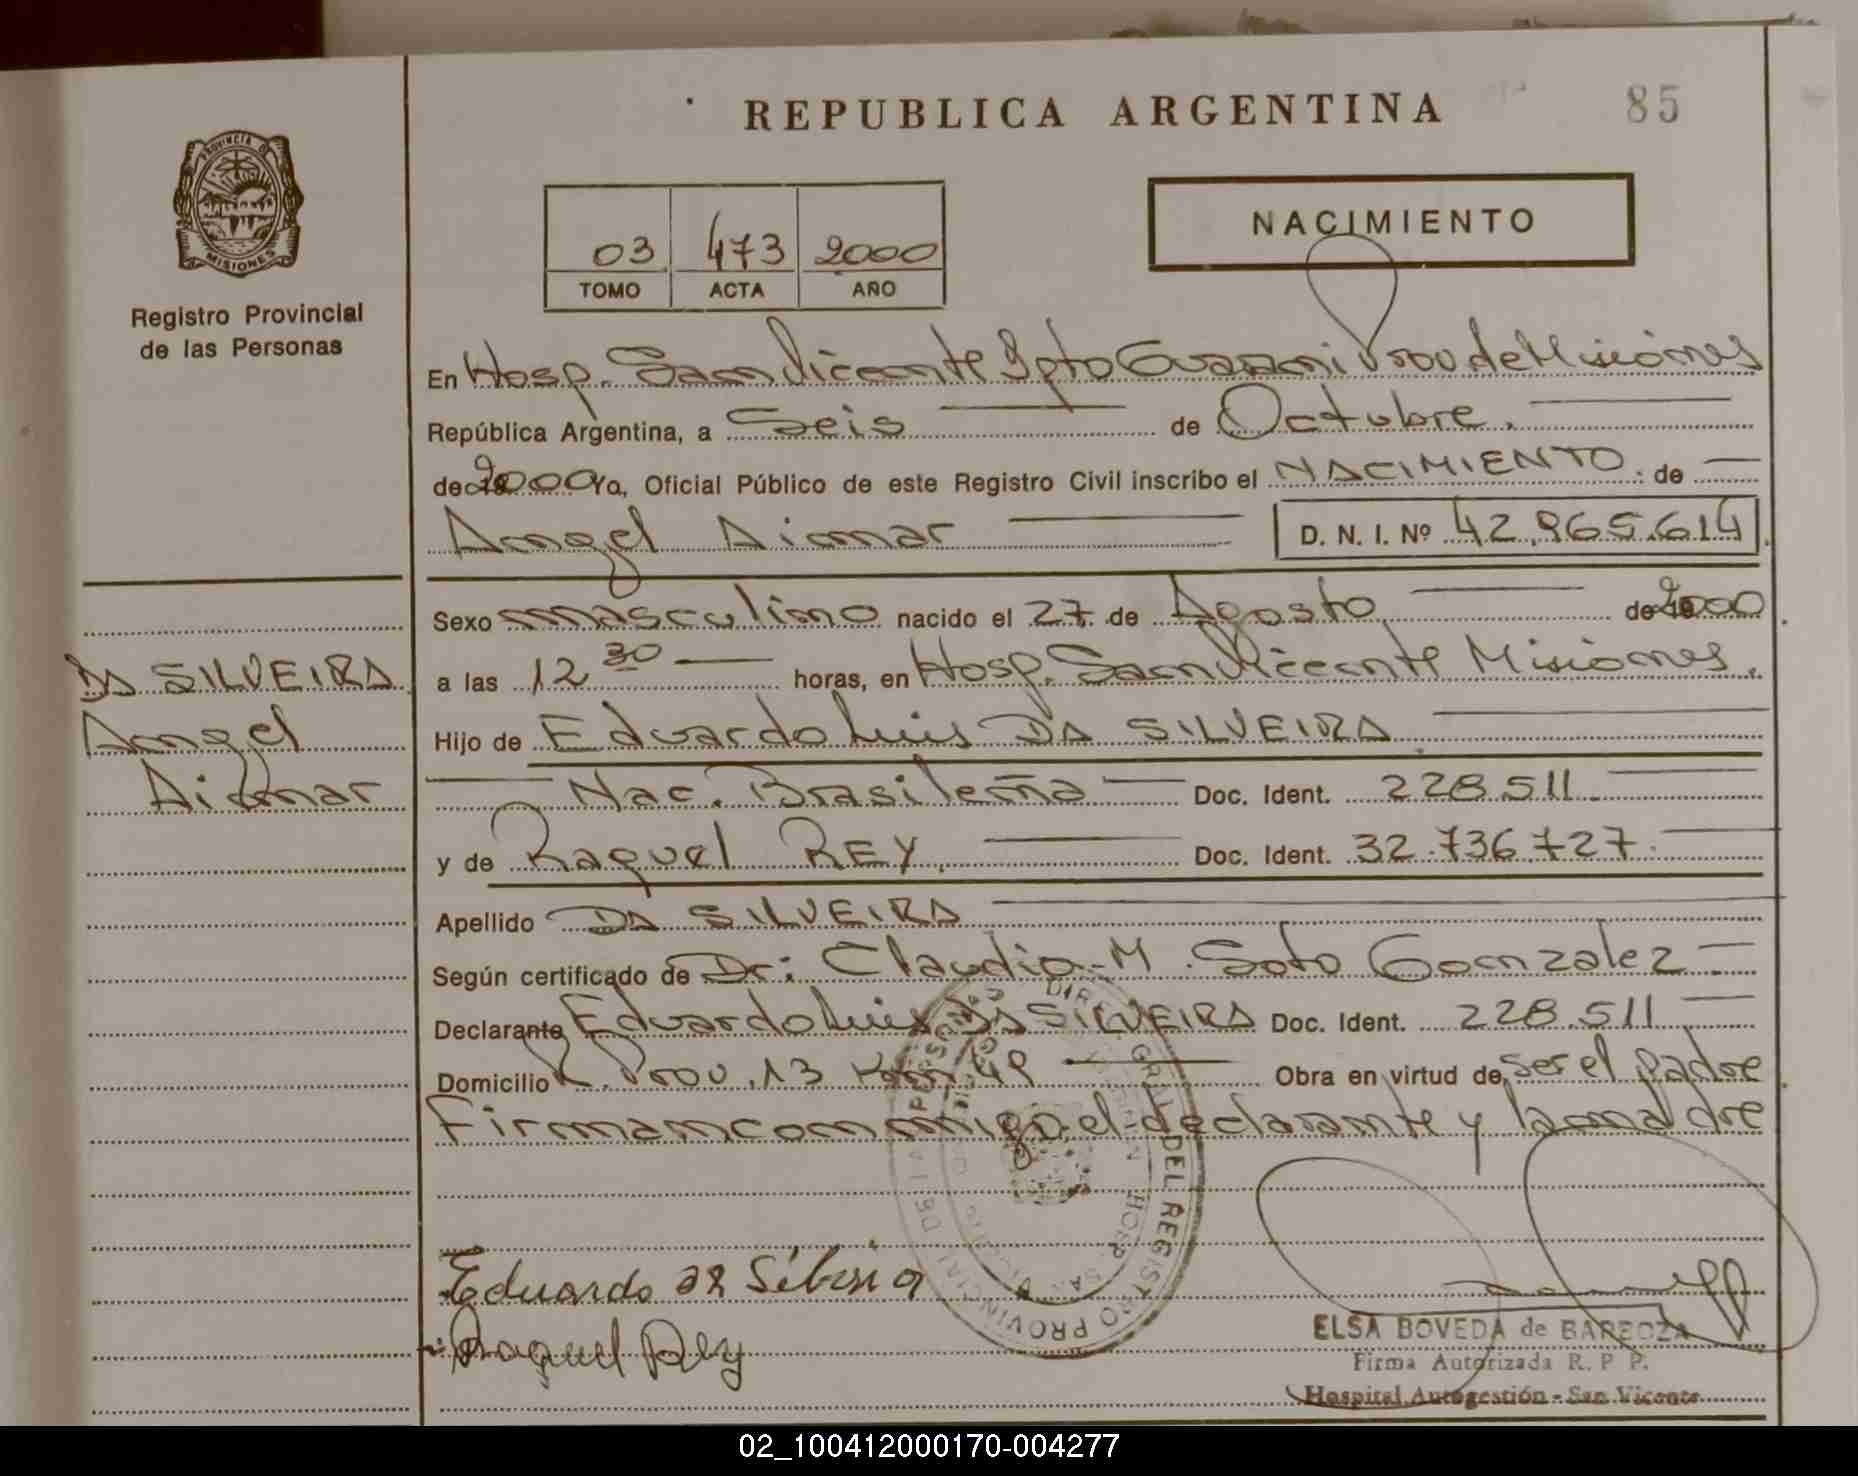 REPUBLICA ARGENTINA
85
PROVINCIA DE MISIONES
Registro Provincial
de las Personas
03 473 2000
TOMO ACTA AÑO
NACIMIENTO
En Hosp. San Vicente Dpto Guarani Prov de Misiones
República Argentina, a Seis de Octubre.
de 2000 Yo, Oficial Público de este Registro Civil inscribo el NACIMIENTO. de
Angel Aimar D. N. I. Nº 42.965.614
Sexo masculino nacido el 27 de Agosto de 2000
a las 12 30 horas, en Hosp. San Vicente Misiones.
Hijo de Eduardo Luis DA SILVEIRA
Nac. Brasileña Doc. Ident. 228.511
y de Raquel REY. Doc. Ident. 32.736.727
Apellido DA SILVEIRA
Según certificado de Dr: Claudia M. Soto Gonzalez
Declarante Eduardo Luis DA SILVEIRA Doc. Ident. 228.511
Domicilio R. Prov. 13 Km 49 Obra en virtud de ser el padre
Firman conmigo el declarante y la madre
DA SILVEIRA
Angel
Aimar
DIREC. GRAL. DEL REGISTRO PROVINCIAL DE LAS PERSONAS
Eduardo da Silveira
Raquel Rey
ELSA BOVEDA de BARBOZA
Firma Autorizada R. P. P.
Hospital Autogestión - San Vicente
02_100412000170-004277